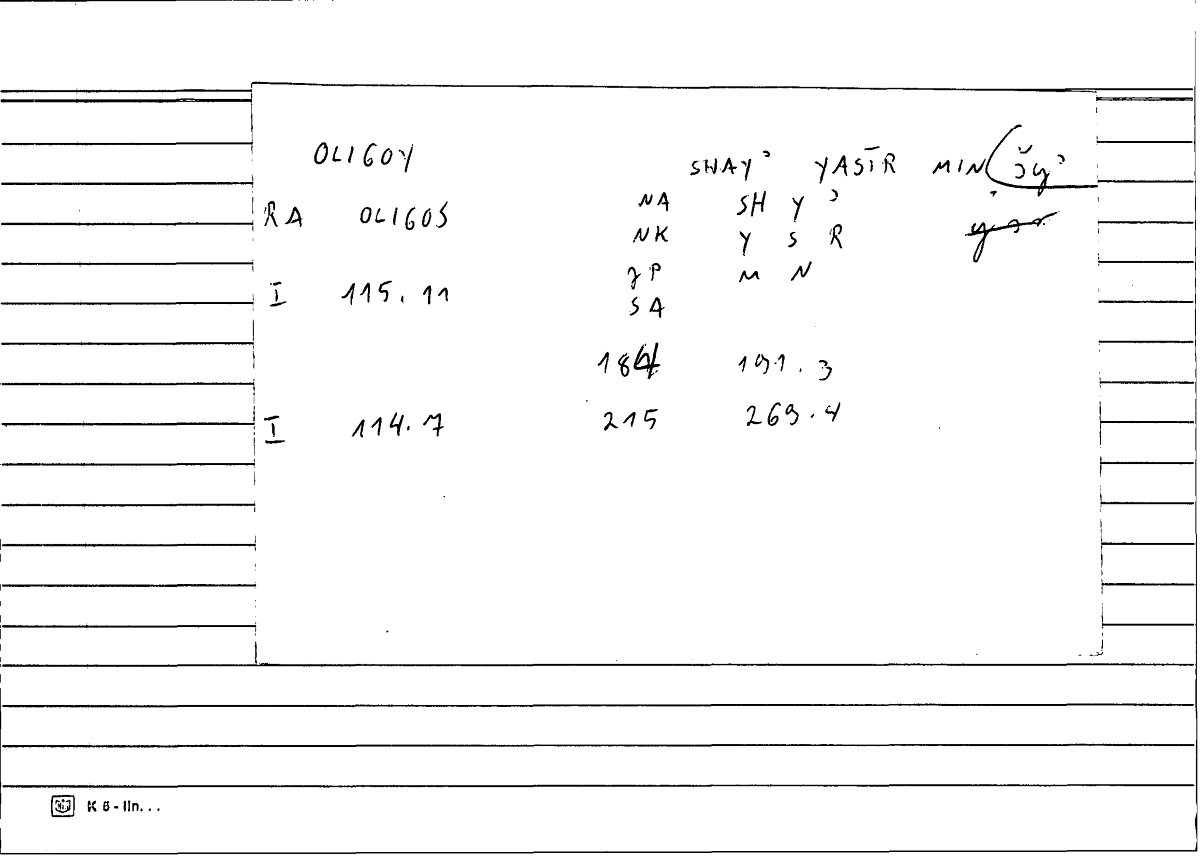 OLIGOY SHAYʾ YASĪR MIN
RA OLIGOS NA SH Y ʾ
NK Y S R
JP M N
I 115.11 SA
184 191.3
I 114.7 215 269.4
K 6 - lin...